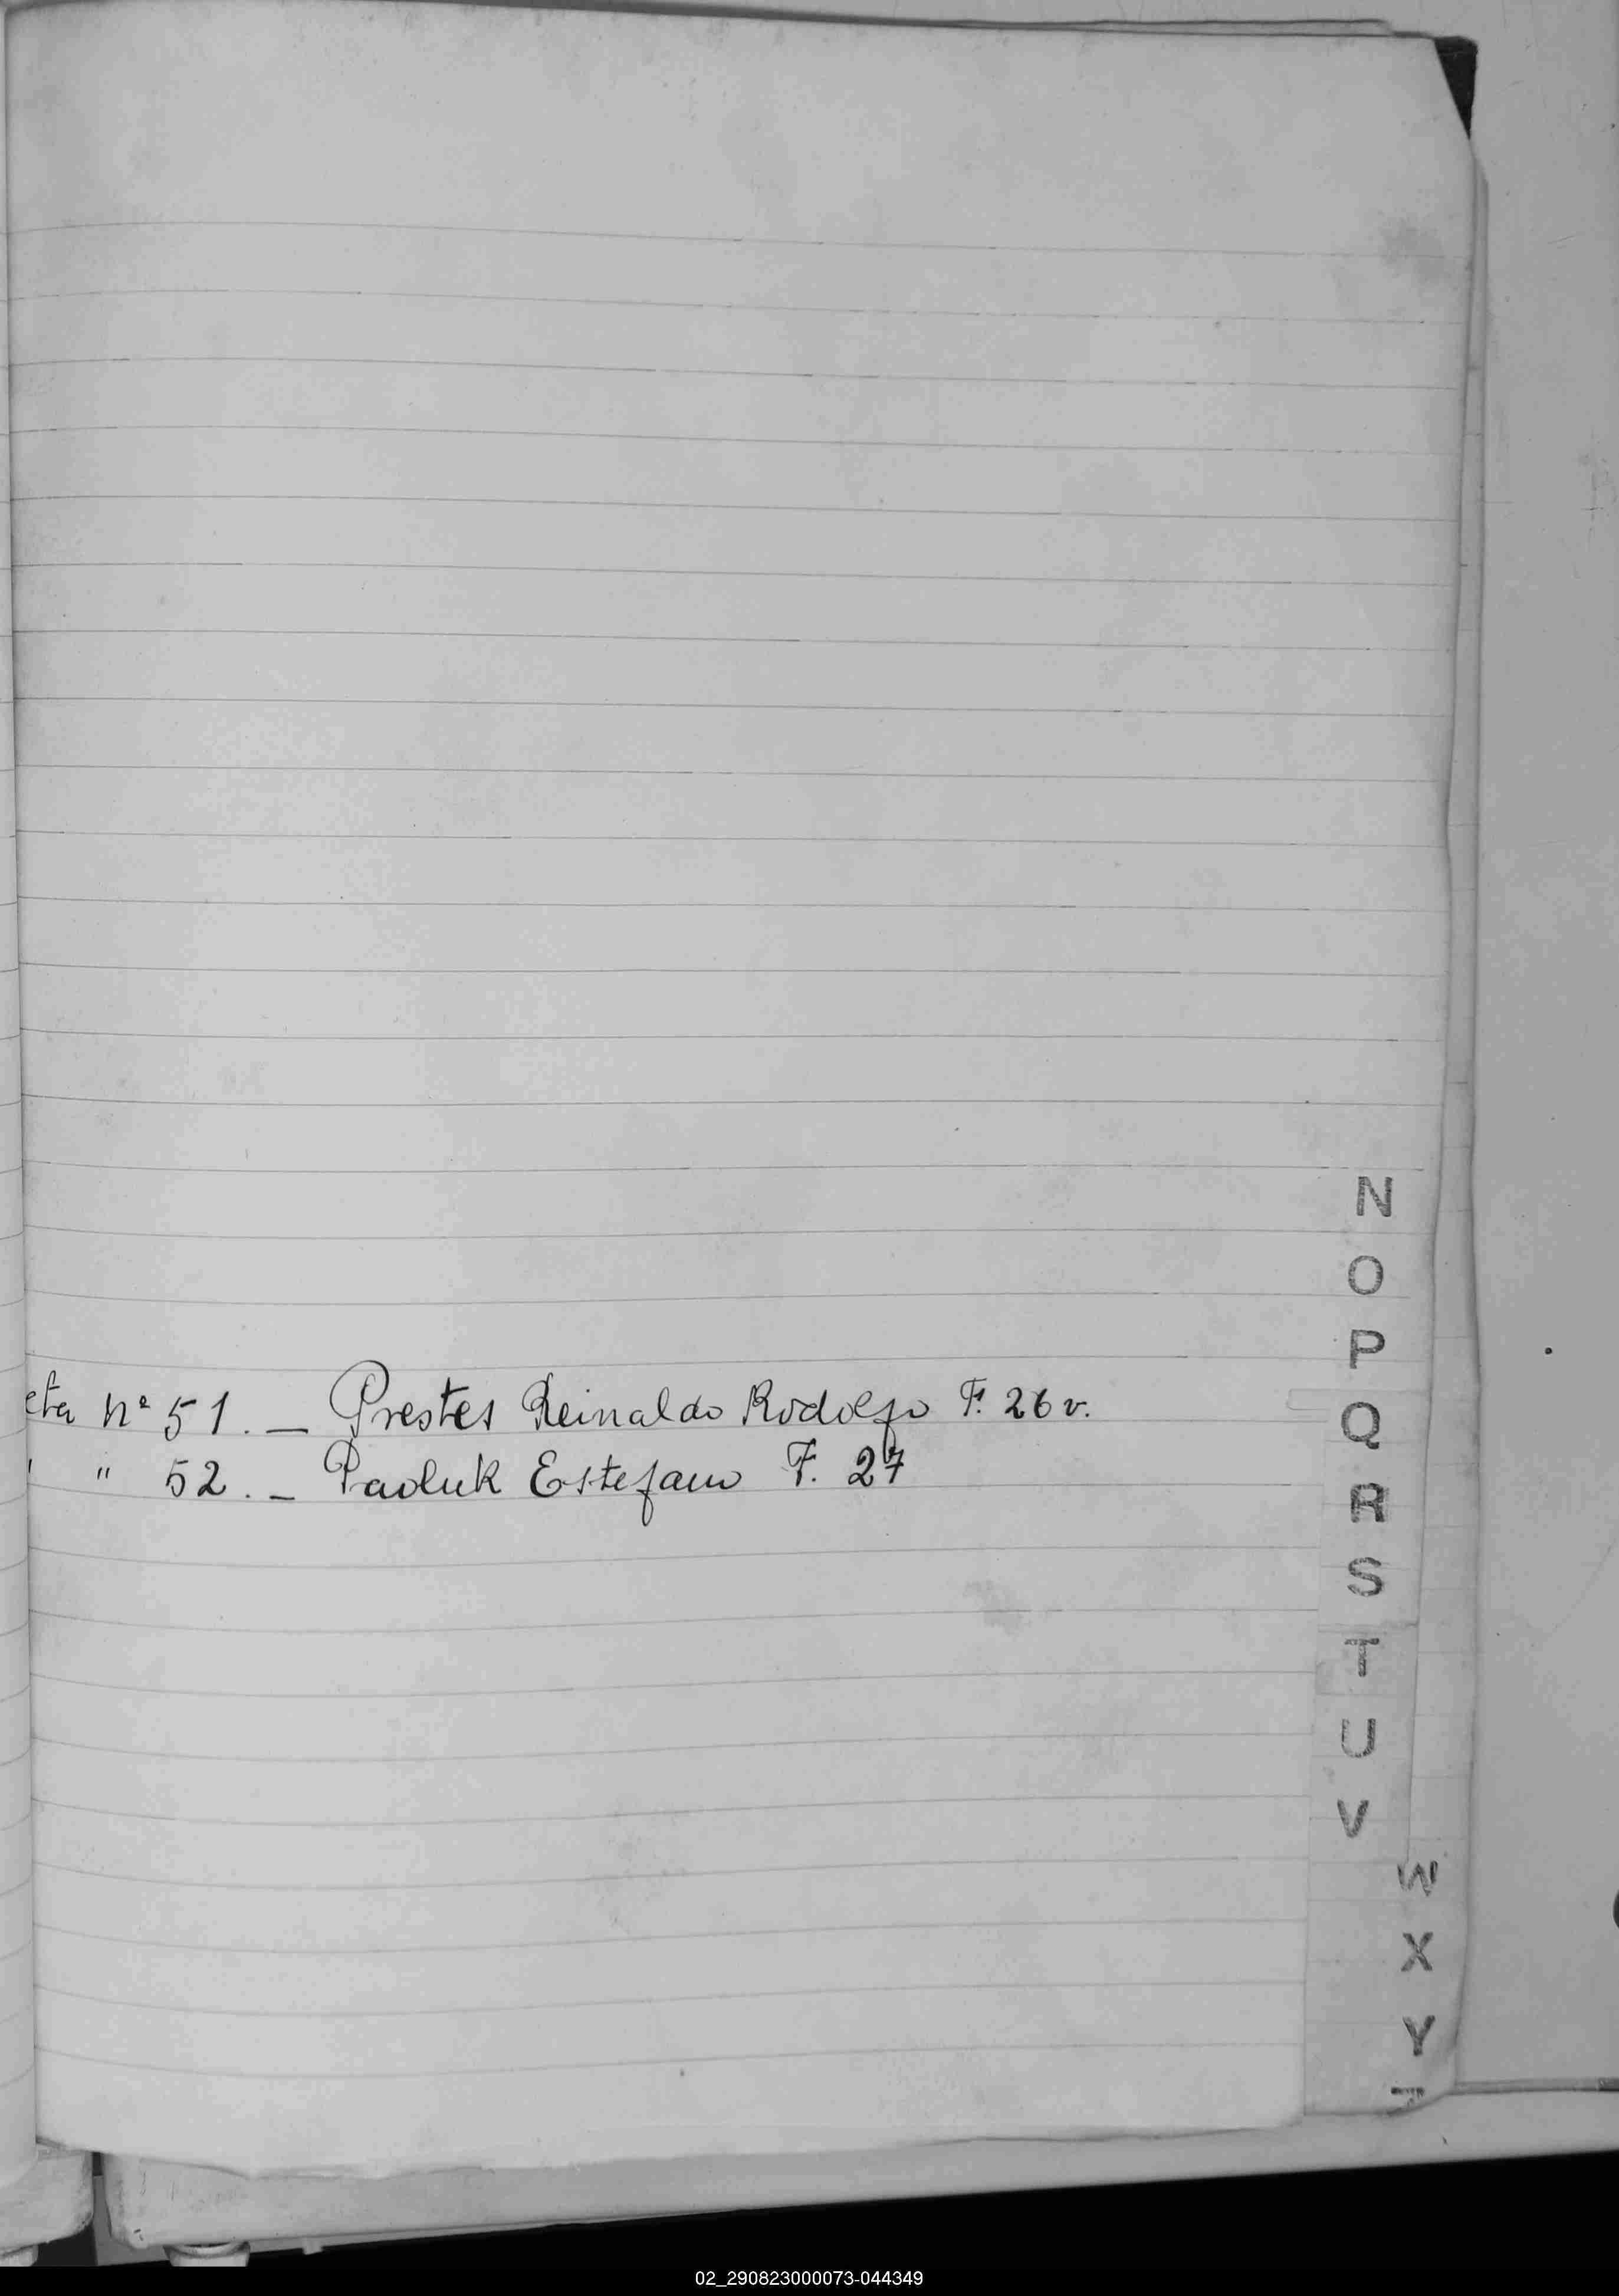 cta nº 51. — Prestes Reinaldo Rodolfo F. 26 v.
" " 52. — Paoluk Estefano F. 27
N
O
P
Q
R
S
T
U
V
W
X
Y
Z
02_290823000073-044349